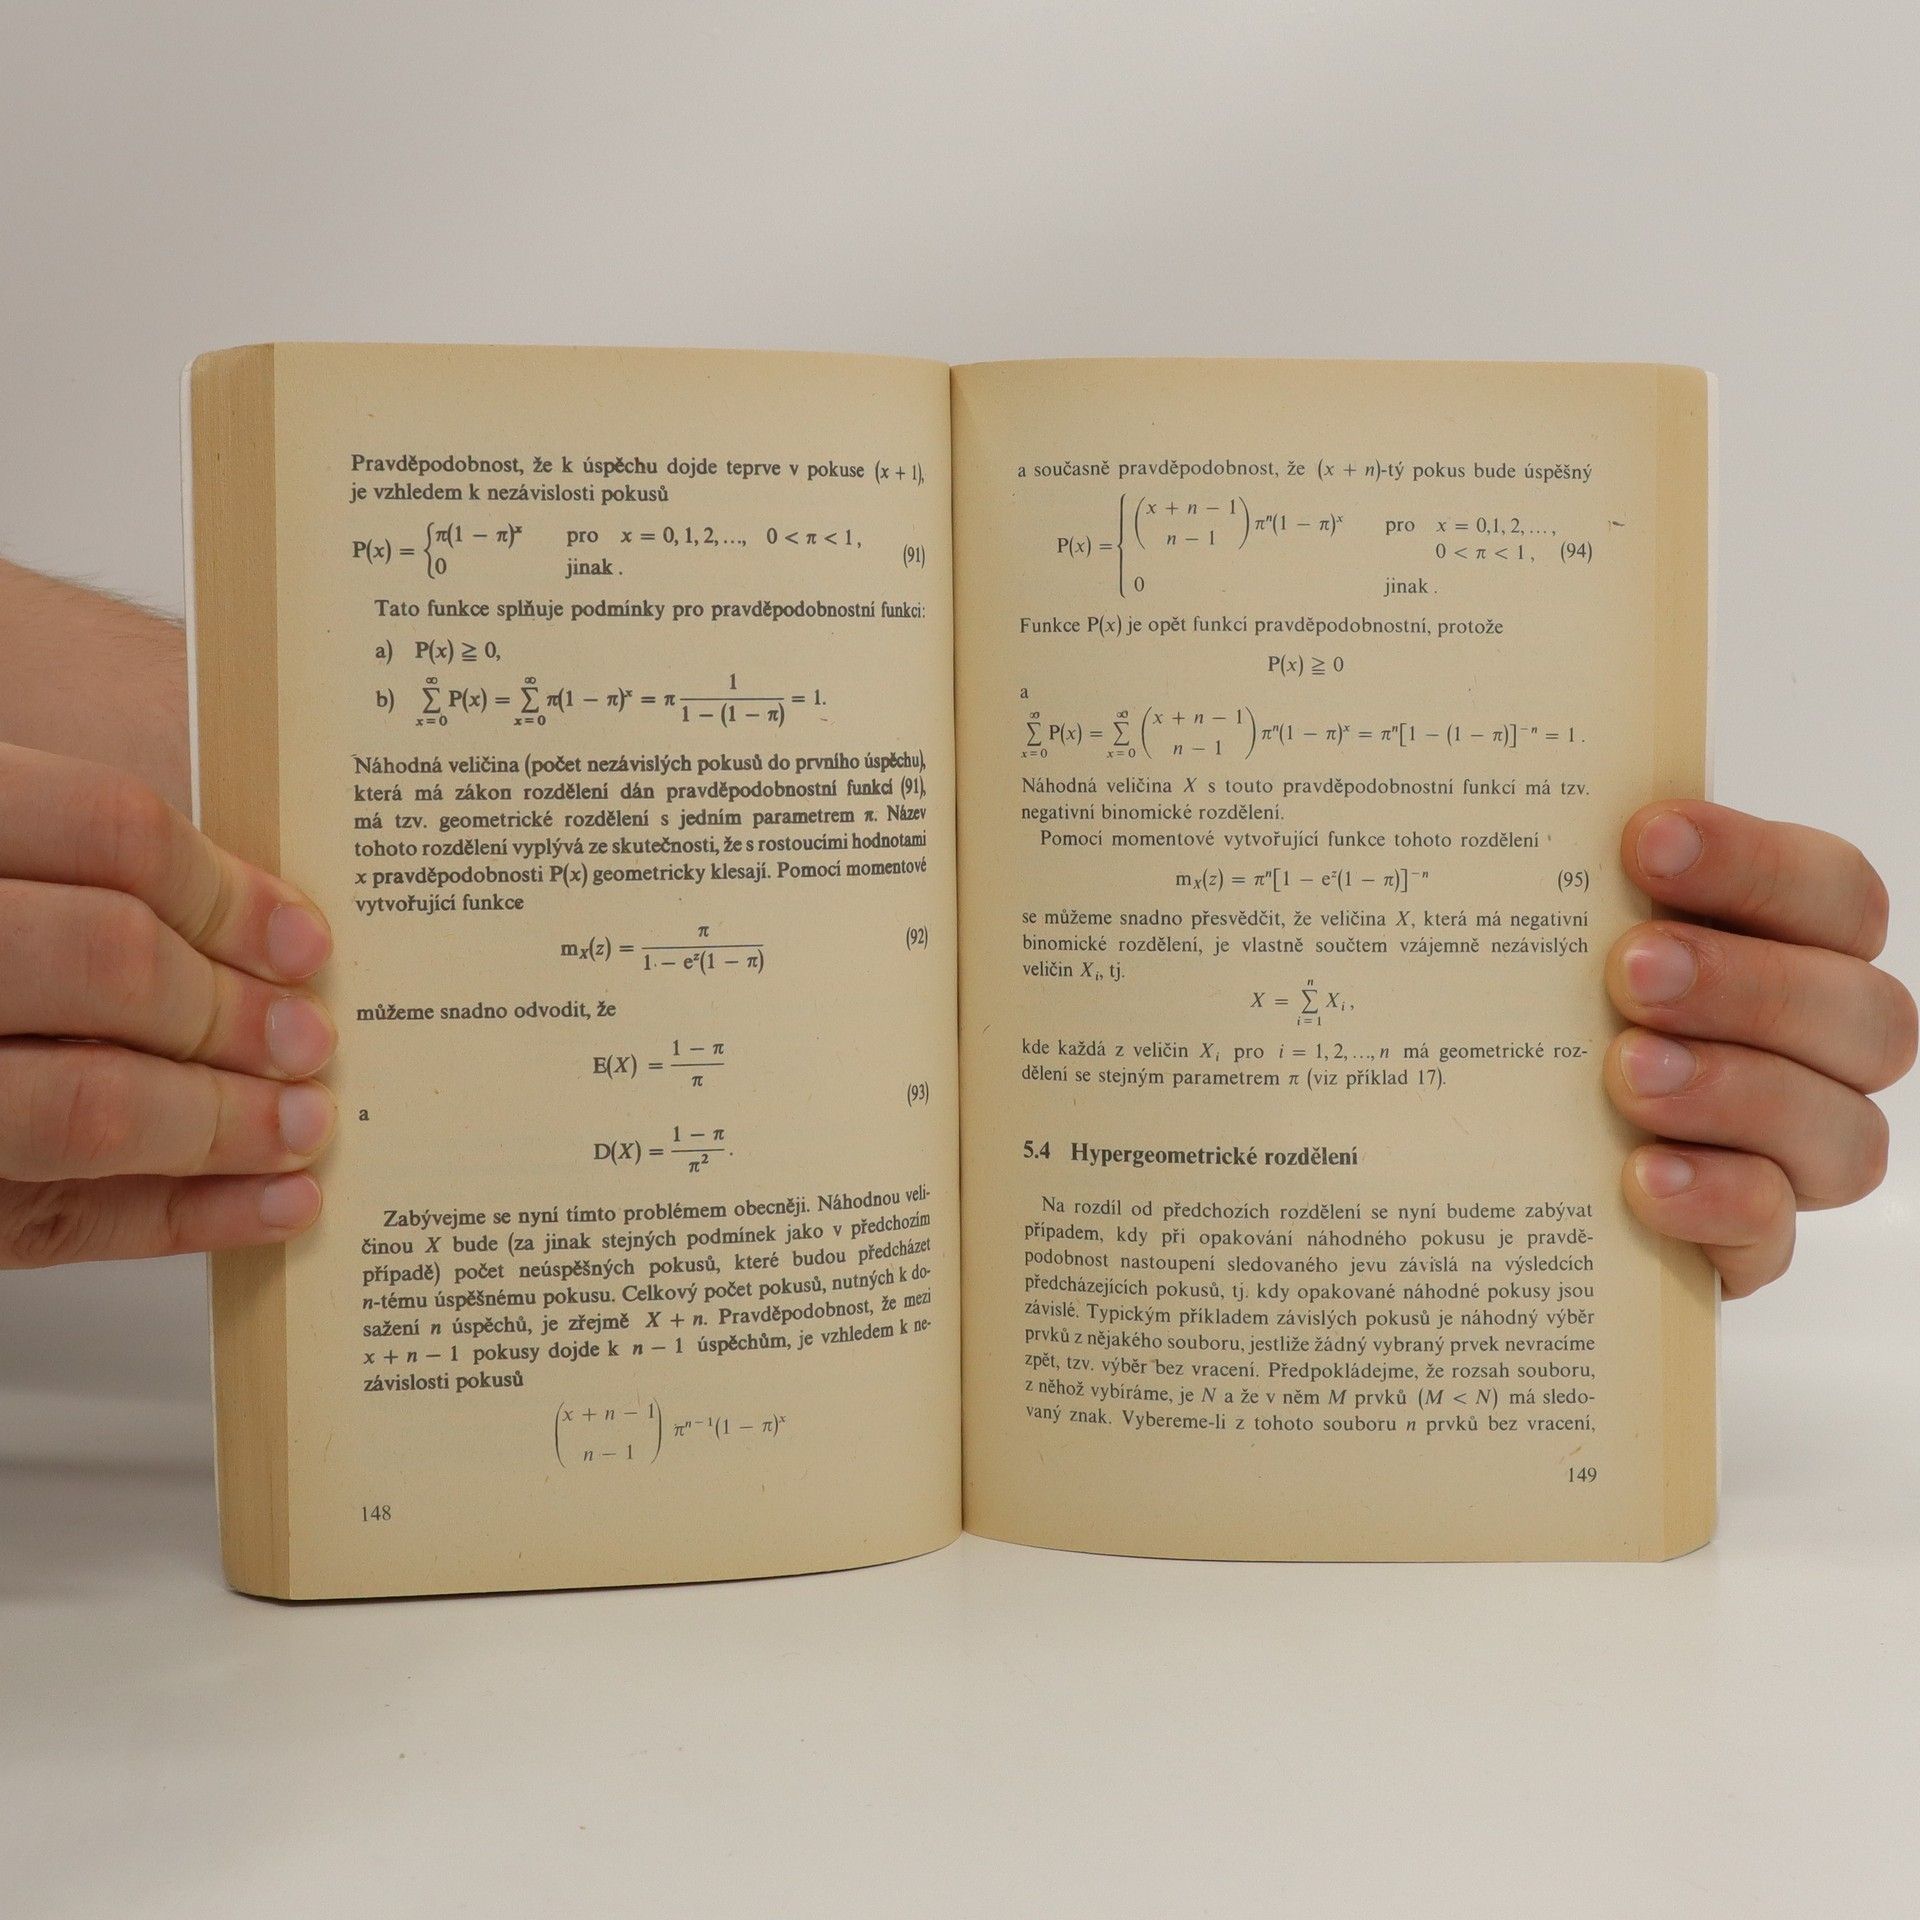 Pravděpodobnost, že k úspěchu dojde teprve v pokuse (x + 1),
je vzhledem k nezávislosti pokusů
P(x) = { π(1 − π)^x pro x = 0, 1, 2, ..., 0 < π < 1,
0 jinak. (91)
Tato funkce splňuje podmínky pro pravděpodobnostní funkci:
a) P(x) ≧ 0,
b) ∑_{x=0}^{∞} P(x) = ∑_{x=0}^{∞} π(1 − π)^x = π 1/(1 − (1 − π)) = 1.
Náhodná veličina (počet nezávislých pokusů do prvního úspěchu),
která má zákon rozdělení dán pravděpodobnostní funkcí (91),
má tzv. geometrické rozdělení s jedním parametrem π. Název
tohoto rozdělení vyplývá ze skutečnosti, že s rostoucími hodnotami
x pravděpodobnosti P(x) geometricky klesají. Pomocí momentové
vytvořující funkce
m_X(z) = π/(1 − e^z(1 − π)) (92)
můžeme snadno odvodit, že
E(X) = (1 − π)/π
(93)
a
D(X) = (1 − π)/π².
Zabývejme se nyní tímto problémem obecněji. Náhodnou veli-
činou X bude (za jinak stejných podmínek jako v předchozím
případě) počet neúspěšných pokusů, které budou předcházet
n-tému úspěšnému pokusu. Celkový počet pokusů, nutných k do-
sažení n úspěchů, je zřejmě X + n. Pravděpodobnost, že mezi
x + n − 1 pokusy dojde k n − 1 úspěchům, je vzhledem k ne-
závislosti pokusů
(x + n − 1
n − 1) π^{n−1}(1 − π)^x
148
a současně pravděpodobnost, že (x + n)-tý pokus bude úspěšný
P(x) = { (x + n − 1
n − 1) π^n(1 − π)^x pro x = 0,1, 2, ...,
0 < π < 1, (94)
0 jinak.
Funkce P(x) je opět funkcí pravděpodobnostní, protože
P(x) ≧ 0
a
∑_{x=0}^{∞} P(x) = ∑_{x=0}^{∞} (x + n − 1
n − 1) π^n(1 − π)^x = π^n[1 − (1 − π)]^{−n} = 1.
Náhodná veličina X s touto pravděpodobnostní funkcí má tzv.
negativní binomické rozdělení.
Pomocí momentové vytvořující funkce tohoto rozdělení
m_X(z) = π^n[1 − e^z(1 − π)]^{−n} (95)
se můžeme snadno přesvědčit, že veličina X, která má negativní
binomické rozdělení, je vlastně součtem vzájemně nezávislých
veličin X_i, tj.
X = ∑_{i=1}^{n} X_i,
kde každá z veličin X_i pro i = 1, 2, ..., n má geometrické roz-
dělení se stejným parametrem π (viz příklad 17).
5.4 Hypergeometrické rozdělení
Na rozdíl od předchozích rozdělení se nyní budeme zabývat
případem, kdy při opakování náhodného pokusu je pravdě-
podobnost nastoupení sledovaného jevu závislá na výsledcích
předcházejících pokusů, tj. kdy opakované náhodné pokusy jsou
závislé. Typickým příkladem závislých pokusů je náhodný výběr
prvků z nějakého souboru, jestliže žádný vybraný prvek nevracíme
zpět, tzv. výběr bez vracení. Předpokládejme, že rozsah souboru,
z něhož vybíráme, je N a že v něm M prvků (M < N) má sledo-
vaný znak. Vybereme-li z tohoto souboru n prvků bez vracení,
149